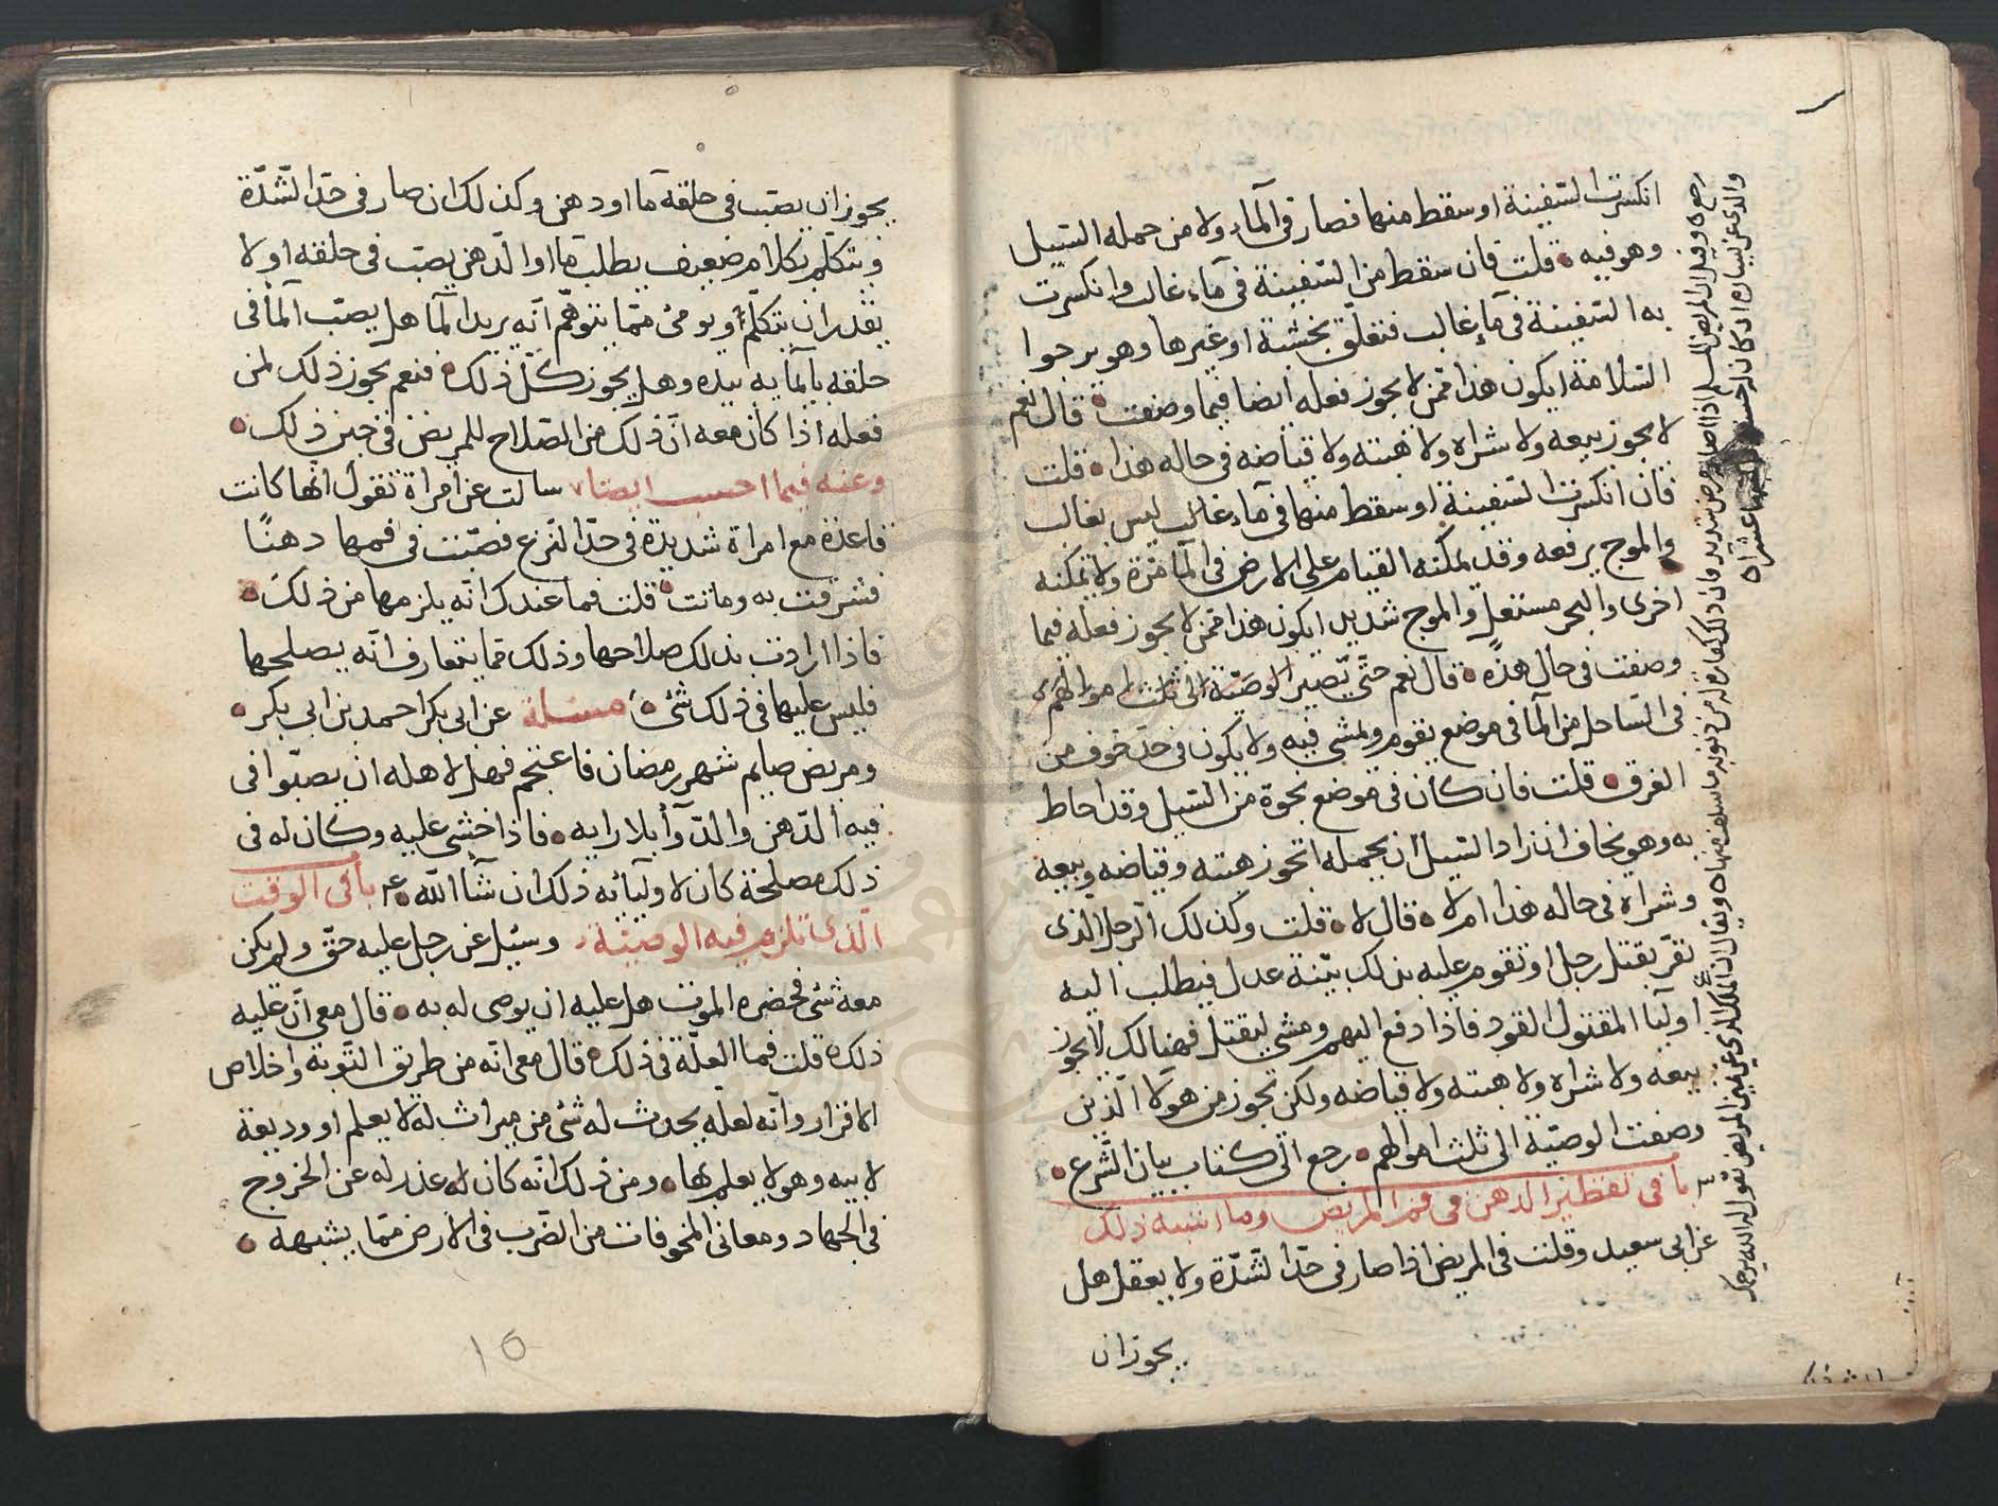 انكسرت السفينة او سقط منها فصار في المآء ولا من حمله السيل
وهو فيه ه قلت فان سقط من السفينة في مآء غالب وانكسرت
به السفينة في مآء غالب فتعلق بخشبة او غيرها وهو يرجوا
السلامة ايكون هذا ممن لا يجوز فعله ايضا فيما وصفت ه قال نعم
لا يجوز بيعه ولا شراه ولا هبته ولا قياضه في حاله هذا ه قلت
فان انكسرت السفينة او سقط منها في مآء غالب ليس بغالب
والموج يرفعه وقد يمكنه القيام على الارض في المآ مرة ولا تمكنه
اخرى والبحر مستغل والموج شديد ايكون هذا ممن لا يجوز فعله فيما
وصفت في حال هذه ه قال نعم حتى تصير الوصية الى ثلث اموالهم ه
في الساحل من المآ في موضع يقوم ويمشي فيه ولا يكون في حد خوف من
الغرق ه قلت فان كان في موضع نجوة من السيل وقد احاط
به وهو يخاف ان زاد السيل ان يحمله اتجوز هبته وقياضه وبيعه
وشراه في حاله هذا ام لا ه قال لا ه قلت وكذلك الرجل الذى
تقر بقتل رجل او تقوم عليه بذلك بينة عدل فيطلب اليه
اوليآ المقتول القود فاذا دفع اليهم ومشي ليقتل فهنالك لا يجوز
بيعه ولا شراه ولا هبته ولا قياضه ولكن تجوز من هولآ الذين
وصفت الوصية الى ثلث اموالهم ه رجع الى كتاب بيان الشرع ه
باب في تقطير الدهن في فم المريض وما اشبه ذلك
عن ابي سعيد وقلت في المريض اذا صار في حد الشدة ولا يعقل هل
يجوز ان
رجع ه وقيل ان المريض المسلم اذا صار مرض شديد فان ذلك كفارة له من ذنوبه ما سلف منها ه ويقال ان الملك الذى عن يمين المريض تقول له الله يرحمك
والذى عن يساره اذ كان احسن عشراه
يجوز ان يصب في حلقه مآ او دهن وكذلك ان صار في حد الشدة
ويتكلم بكلام ضعيف يطلب مآ او الدهن يصب في حلقه او لا
يقدر ان يتكلم او يومئ مما يتوهم انه يريد المآ هل يصب المآ في
حلقه بالمآ به بيده وهل يجوز كل ذلك ه فنعم يجوز ذلك لمن
فعله اذا كان معه ان ذلك من الصلاح للمريض في حين ذلك ه
وعنه فيما احسب ايضا سالت عن امراة تقول انها كانت
قاعدة مع امراة شديدة في حد النزع فصبت في فمها دهنًا
فشرقت به وماتت ه قلت فما عندك انه يلزمها من ذلك ه
فاذا ارادت بذلك صلاحها وذلك مما يتعارف انه يصلحها
فليس عليها في ذلك شئ ه مسئلة عن ابي بكر احمد بن ابي بكر ه
ومريض صايم شهر رمضان فاعتجم فهل لاهله ان يصبوا في
فيه الدهن والدوآ بلا رايه ه فاذا خشي عليه وكان له في
ذلك مصلحة كان لاوليآئه ذلك ان شآ الله ه باب في الوقت
الذى تلزم فيه الوصية وسئل عن رجل عليه حق ولم يكن
معه شئ فحضره الموت هل عليه ان يوصى له به ه قال معي ان عليه
ذلك ه قلت فما العلة في ذلك ه قال معي انه من طريق التوبة واخلاص
الاقرار وانه لعله يحدث له شئ من ميراث له لا يعلم او وديعة
لابيه وهو لا يعلم بها ه ومن ذلك انه كان له عذر له عن الخروج
في الجهاد ومعاني المخوفات من الضرب في الارض مما يشبهه ه
١٥